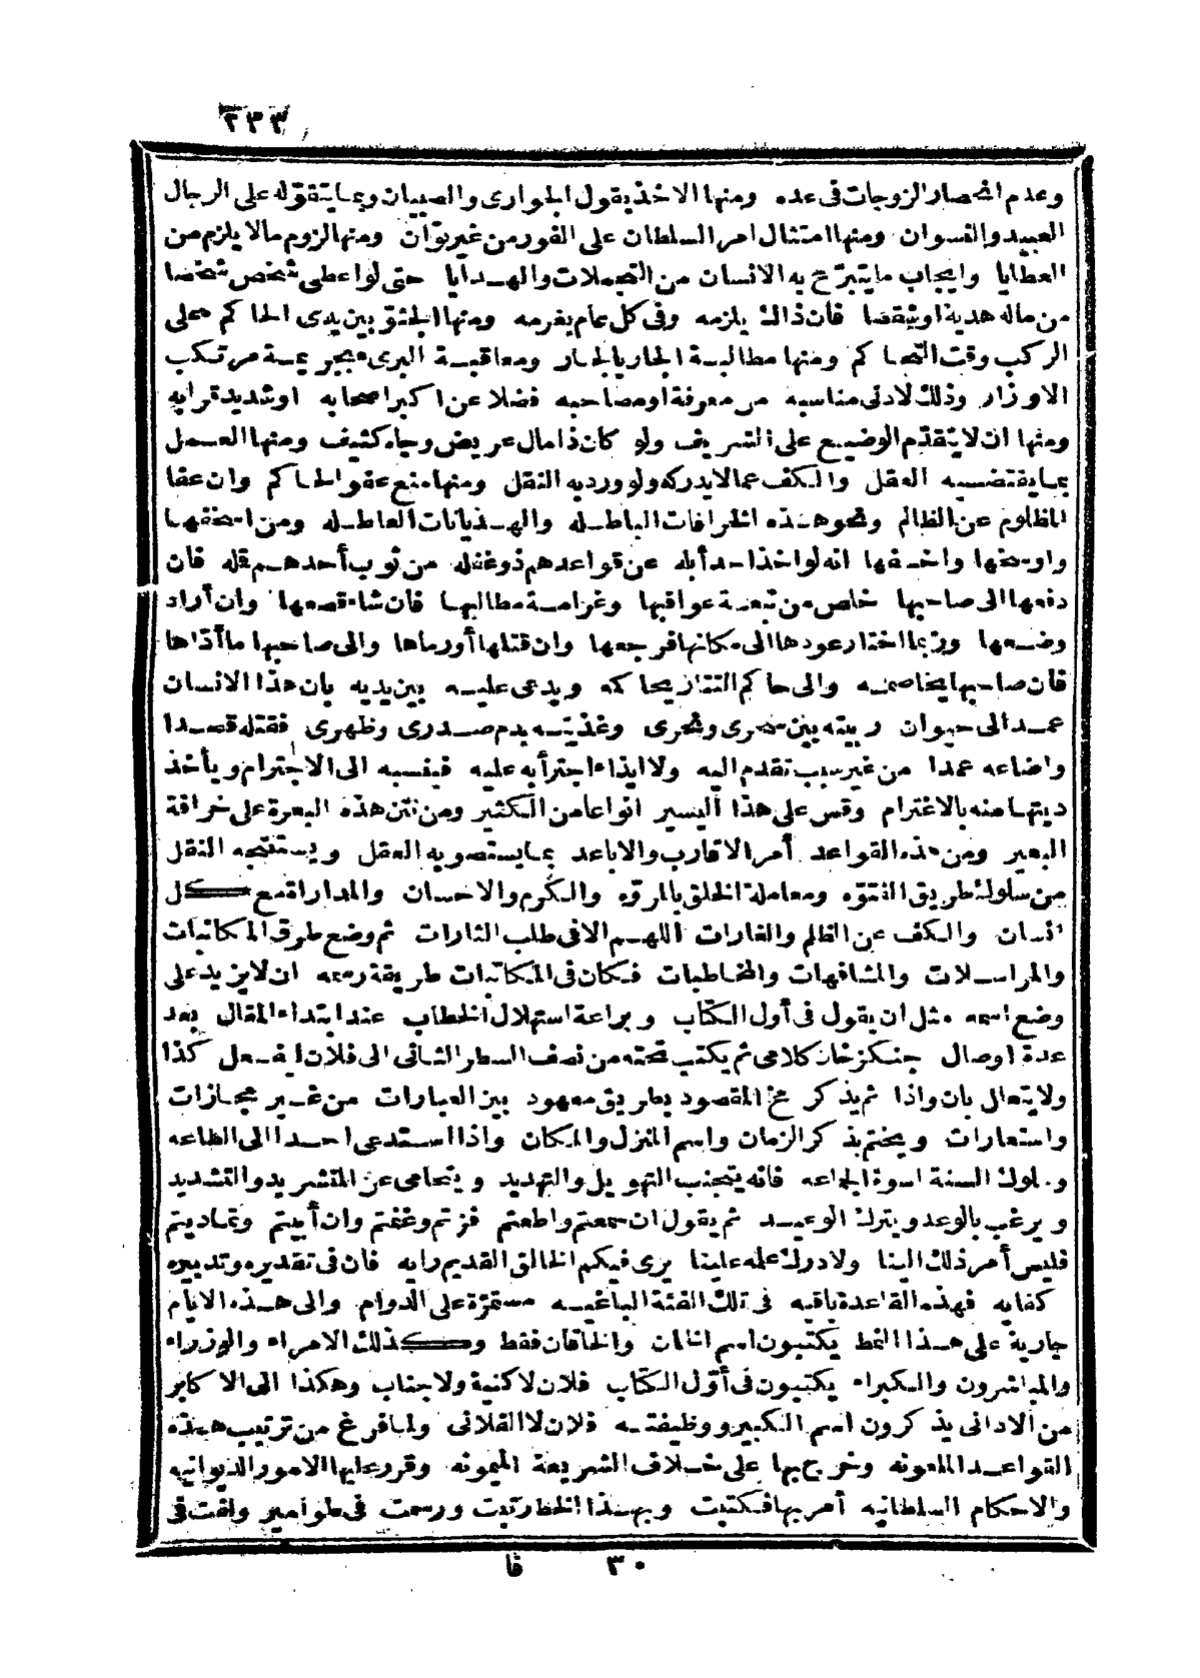 ٢٣٣
وعدم انحصار الزوجات فى عده ومنها الاخذ بقول الجوارى والصبيان وبما يتقوله على الرجال
العبيد والنسوان ومنها امتثال امر السلطان على الفور من غير توان ومنها لزوم مالا يلزم من
العطايا وايجاب ما يتبرع به الانسان من التجملات والهدايا حتى لو اعطى شخص شخصا
من ماله هدية او شقصا فان ذلك يلزمه وفى كل عام يغرمه ومنها الجثو بين يدى الحاكم على
الركب وقت التحاكم ومنها مطالبة الجار بالجار ومعاقبة البرى بجريمة مرتكب
الاوزار وذلك لادنى مناسبه من معرفة او مصاحبه فضلا عن اكبر اصحابه او شديد قرابه
ومنها ان لا يتقدم الوضيع على الشريف ولو كان ذا مال عريض وجاه كثيف ومنها العمل
بما يقتضيه العقل والكف عمالا يدركه ولو ورد به النقل ومنها منع عفو الحاكم وان عفا
المظلوم عن الظالم ونحو هذه الخرافات الباطله والهذيانات العاطله ومن اسخفها
واوسخها واخسفها انه لو اخذ احد أبله عن قواعدهم ذو غفله من ثوب أحدهم قمله فان
دفعها الى صاحبها خلص من تبعة عواقبها وغرامة مطالبها فان شاء قصعها وان أراد
وضعها وربما اختار عودها الى مكانها فرجعها وان قتلها أو رماها والى صاحبها ما أداها
فان صاحبها يخاصمه والى حاكم التتار يحاكمه ويدعى عليه بين يديه بان هذا الانسان
عمد الى حيوان ربيته بين سحرى ونحرى وغذيته بدم صدرى وظهرى فقتله قصدا
واضاعه عمدا من غير سبب تقدم اليه ولا ايذاء اجترأ به عليه فينسبه الى الاجترام ويأخذ
ديتها منه بالاغترام وقس على هذا اليسير انواعا من الكثير ومن نتن هذه البعرة على خرافة
البعير ومن هذه القواعد أمر الاقارب والاباعد بما يستصوبه العقل ويستنتجه النقل
من سلوك طريق الفتوه ومعاملة الخلق بالمروه والكرم والاحسان والمداراة مع كل
انسان والكف عن الظلم والغارات اللهم الا فى طلب الثارات ثم وضع طرق المكاتبات
والمراسلات والمشافهات والمخاطبات فكان فى المكاتبات طريقة رسمه ان لا يزيد على
وضع اسمه مثل ان يقول فى أول الكتاب وبراعة استهلال الخطاب عند ابتداء المقال بعد
عدة اوصال جنكزخان كلامى ثم يكتب تحته من نصف السطر الثانى الى فلان ليفعل كذا
ولا يتعال بان واذا ثم يذكر مخ المقصود بطريق معهود بين العبارات من غير مجازات
واستعارات ويختم بذكر الزمان واسم المنزل والمكان واذا استدعى احدا الى الطاعه
وسلوك السنة اسوة الجماعه فانه يتجنب التهويل والتهديد ويتحامى عن التشريد والتشديد
ويرغب بالوعد ويترك الوعيد ثم يقول ان سمعتم واطعتم فزتم وغنمتم وان أبيتم وتماديتم
فليس أمر ذلك الينا ولا درك علمه علينا يرى فيكم الخالق القديم رايه فان فى تقديره وتدبيره
كفايه فهذه القاعدة باقيه فى تلك الفئة الباغيه مستمرة على الدوام والى هذه الايام
جارية على هذا النمط يكتبون اسم الخان والخاقان فقط وكذلك الامراء والوزراء
والمباشرون والكبراء يكتبون فى أول الكتاب فلان لا كنية ولا جناب وهكذا الى الاكابر
من الادانى يذكرون اسم الكبير ووظيفته فلان لا الفلانى ولما فرغ من ترتيب هذه
القواعد الملعونه وخرج بها على خلاف الشريعة الميمونه وقرر عليها الامور الديوانيه
والاحكام السلطانيه أمر بها فكتبت وبهذا الخط رتبت ورسمت فى طوامير ولفت فى
٣٠ فا